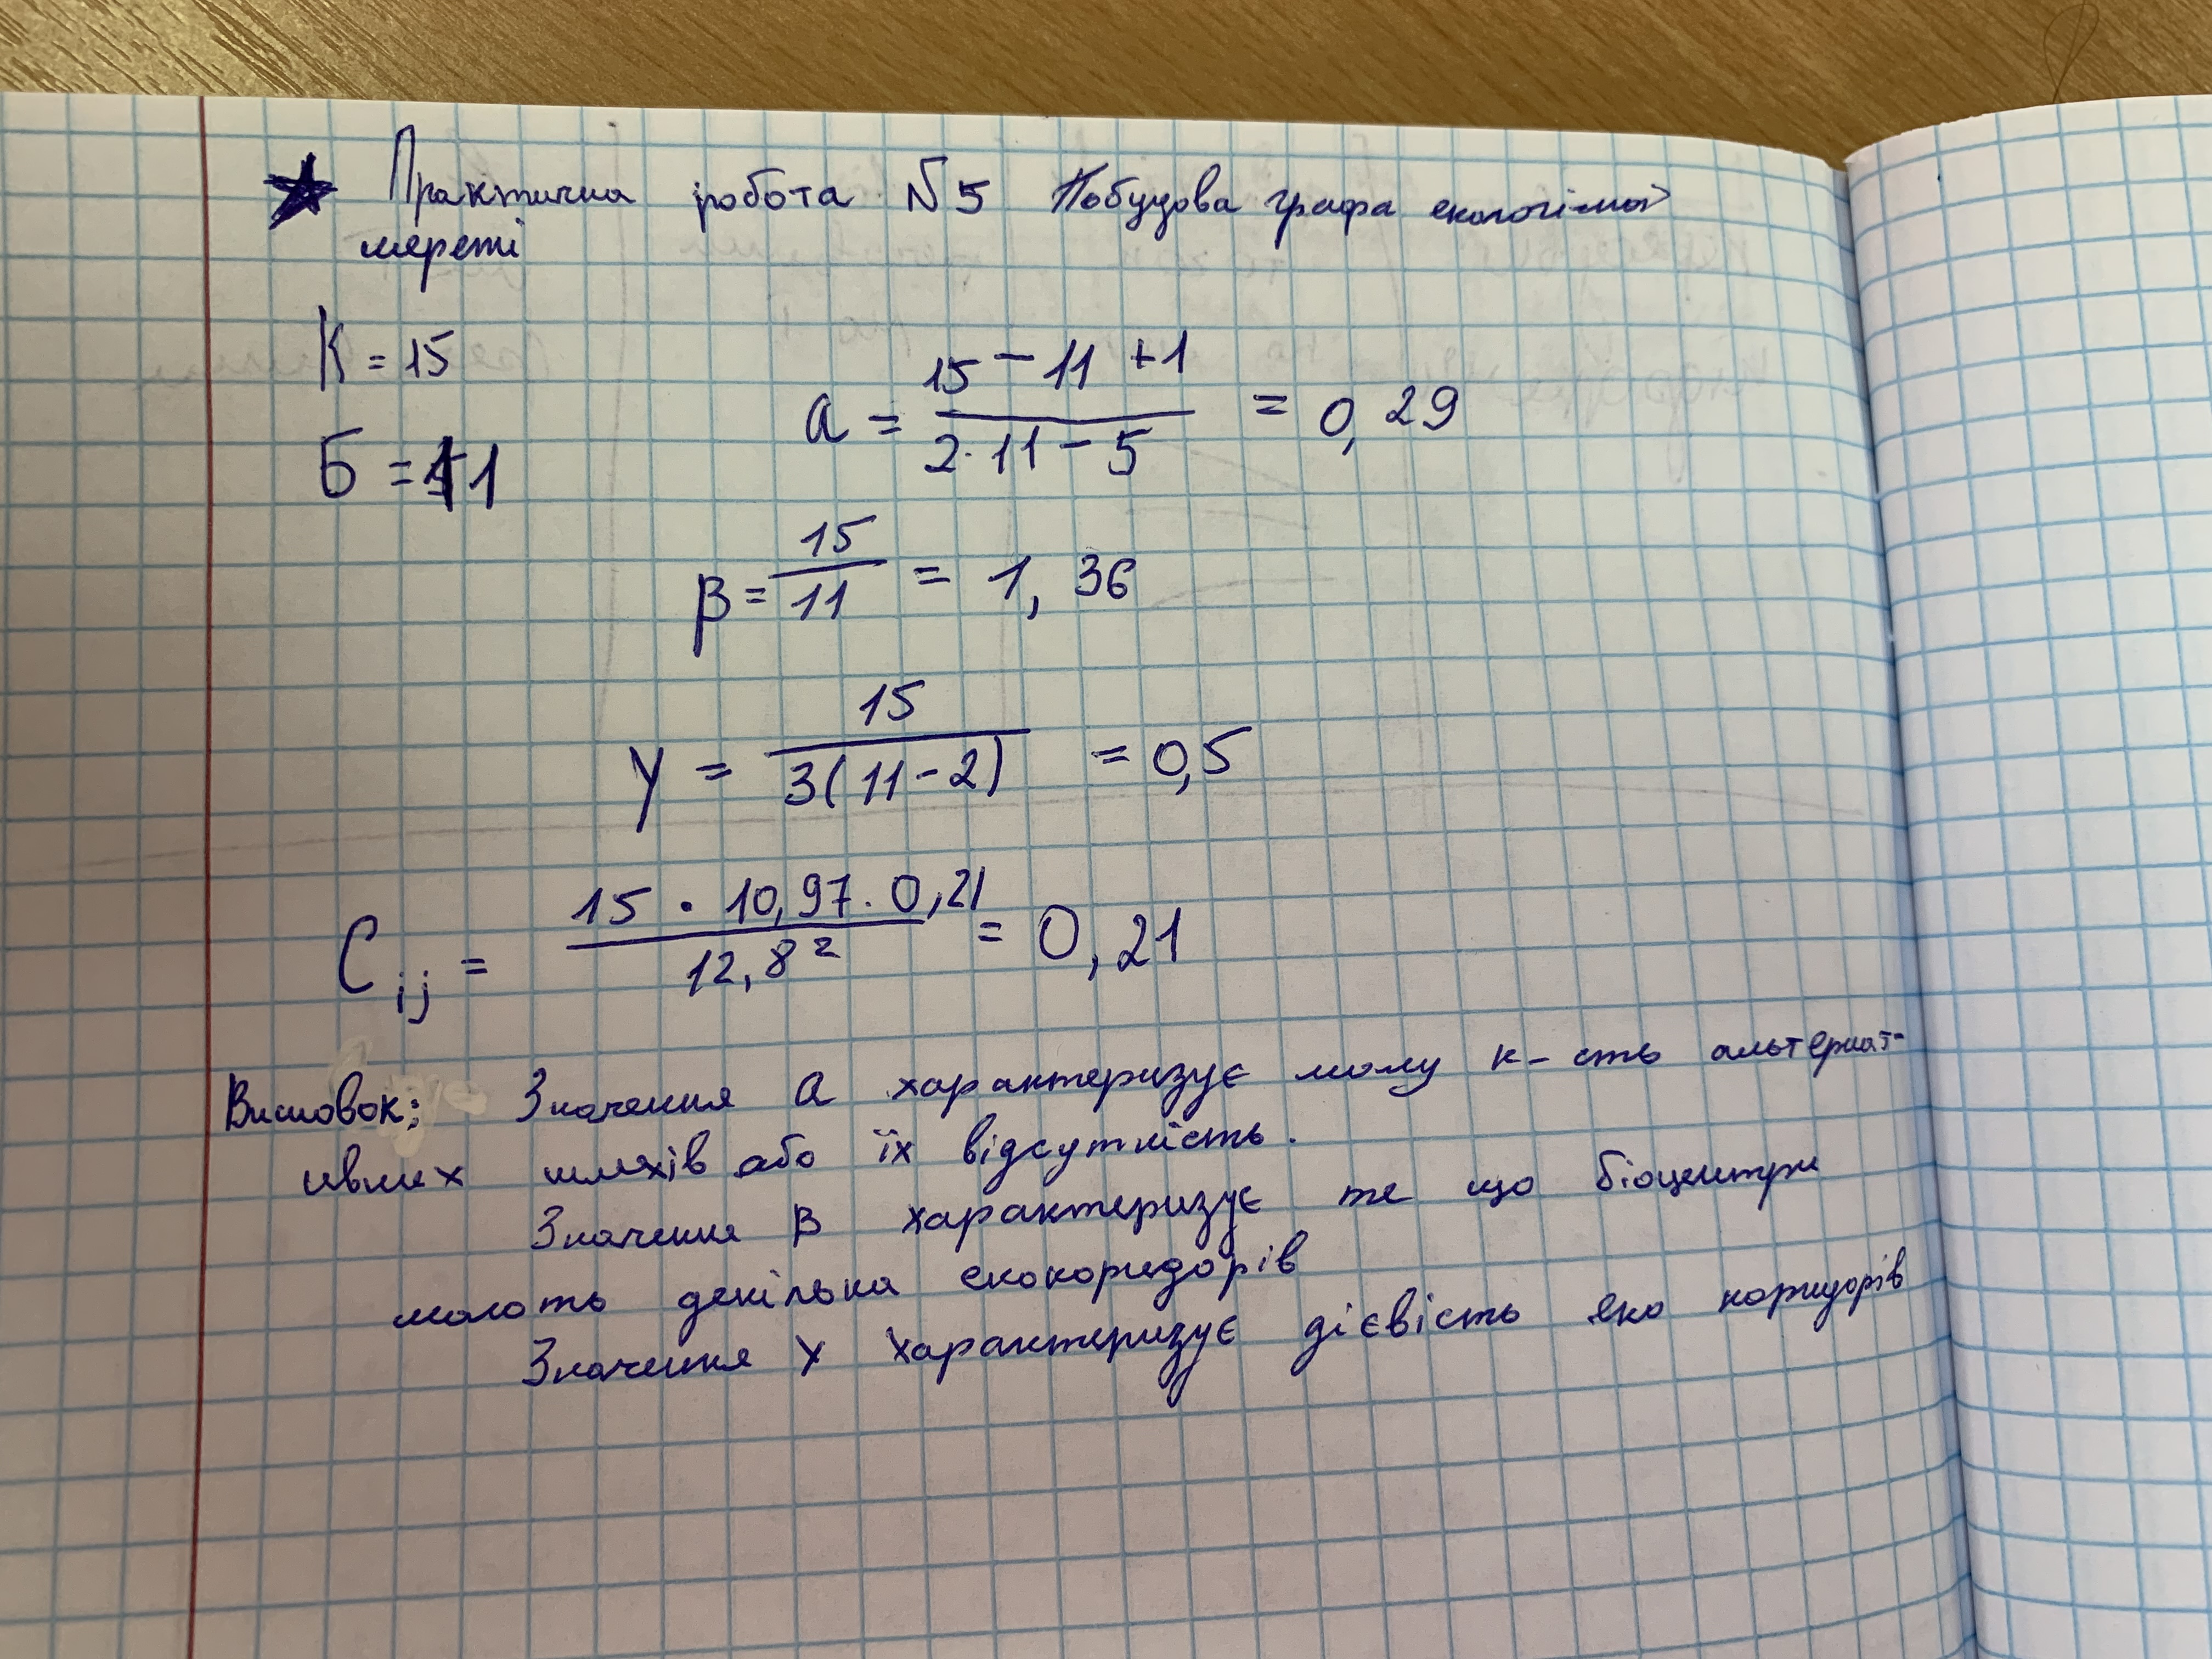 Практична робота №5 Побудова графа екологічної
мережі
К = 15
Б = 11
a = 15 - 11 + 1 / 2·11 - 5 = 0,29
β = 15 / 11 = 1,36
γ = 15 / 3(11 - 2) = 0,5
Cij = 15 · 10,97 · 0,21 / 12,8² = 0,21
Висновок: Значення a характеризує малу к-сть альтернат-
ивних шляхів або їх відсутність.
Значення β характеризує те що біоцентри
мають декілька екокоридорів
Значення γ характеризує дієвість